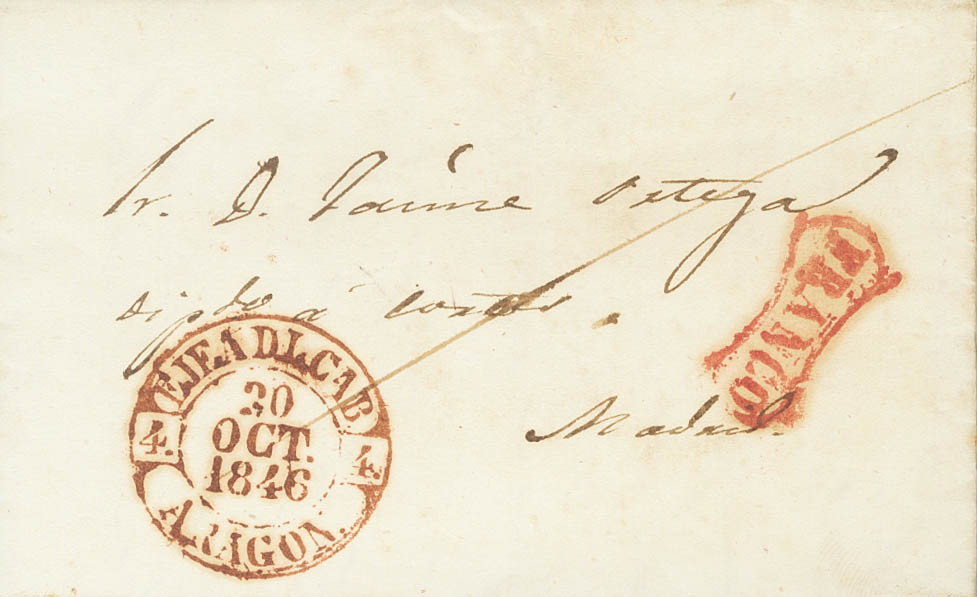 Sr. D. Jaime Ortega
dipdo a cortes.
Madrid.
FRANCO
EJEA DL.CAB
4.
20
OCT.
1846
4.
ARAGON.